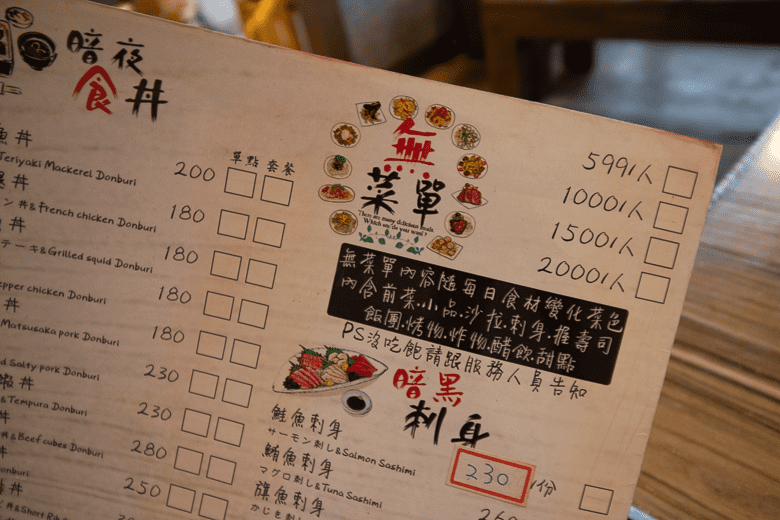 暗夜
食丼
單點 套餐
魚丼
Teriyaki Mackerel Donburi 200
ン丼&French chicken Donburi 180
テーキ&Grilled squid Donburi 180
epper chicken Donburi 180
丼
Matsusaka pork Donburi 180
d Salty pork Donburi 230
蝦丼
&Tempura Donburi 230
丼&Beef cubes Donburi 280
onburi 250
丼
丼&Short Rib
無
菜單
There are many delicious meals
Which one do you want?
599/人
1000/人
1500/人
2000/人
無菜單內容隨每日食材變化菜色
內含前菜.小品.沙拉.刺身.推壽司
飯團.烤物.炸物.醋飲.甜點
PS沒吃飽請跟服務人員告知
暗黑
刺身
鮭魚刺身
サーモン刺し&Salmon Sashimi 230/份
鮪魚刺身
マグロ刺し&Tuna Sashimi
旗魚刺身
かじき刺